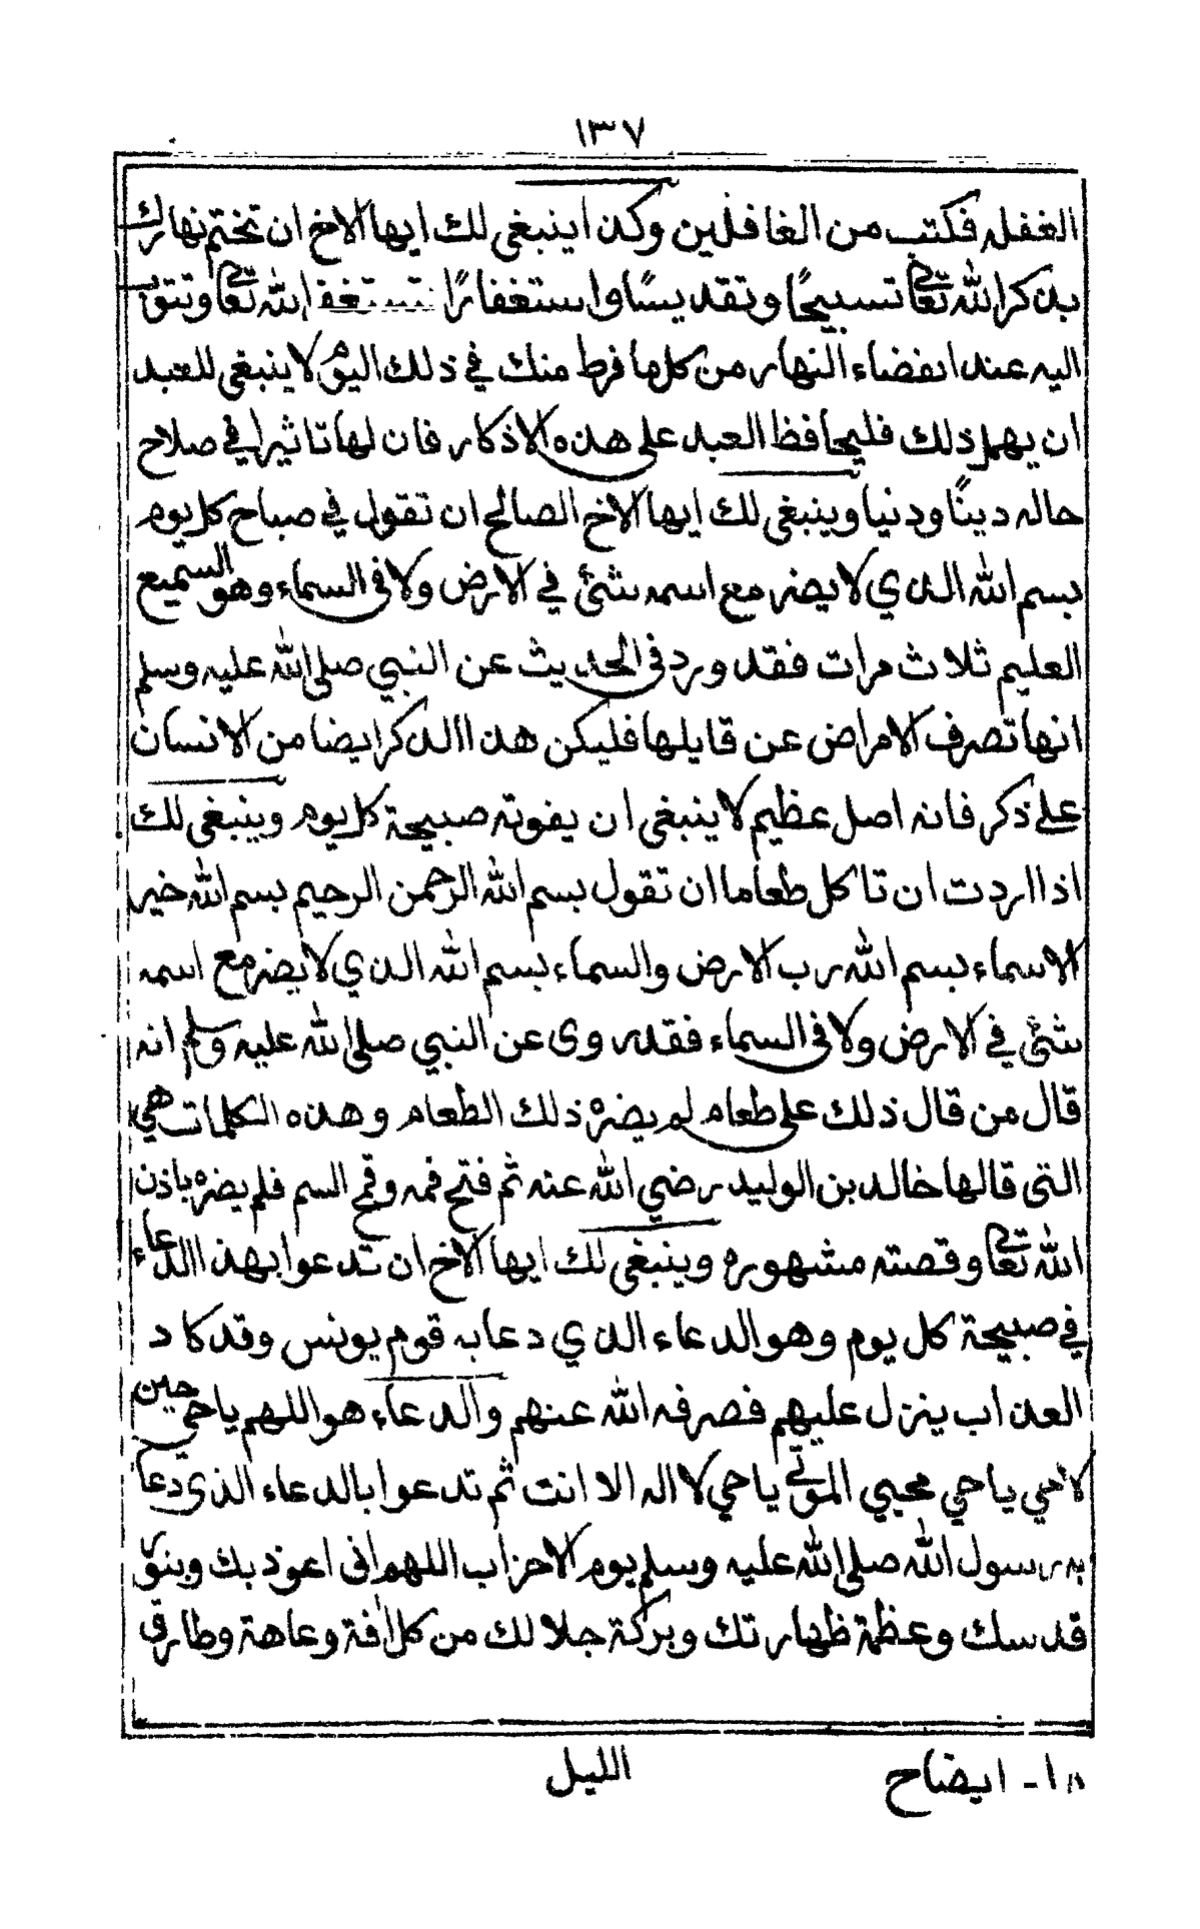 ١٣٧
الغفله فكتب من الغافلين وكذا ينبغي لك ايها الاخ ان تختم نهارك
بذكر الله تعالى تسبيحًا وتقديسًا واستغفارًا الله تعالى وتتوب
اليه عند انقضاء النهار من كل ما فرط منك في ذلك اليوم لا ينبغي للعبد
ان يهمل ذلك فليحافظ العبد على هذه الاذكار فان لها تاثيرا في صلاح
حاله دينًا ودنيا وينبغي لك ايها الاخ الصالح ان تقول في صباح كل يوم
بسم الله الذي لا يضر مع اسمه شئ في الارض ولا في السماء وهو السميع
العليم ثلاث مرات فقد ورد في الحديث عن النبي صلى الله عليه وسلم
انها تصرف الامراض عن قايلها فليكن هذا الذكر ايضا من الانسان
على ذكر فانه اصل عظيم لا ينبغي ان يفوته صبيحة كل يوم وينبغي لك
اذا اردت ان تاكل طعاما ان تقول بسم الله الرحمن الرحيم بسم الله خير
الاسماء بسم الله رب الارض والسماء بسم الله الذي لا يضر مع اسمه
شئ في الارض ولا في السماء فقد روى عن النبي صلى الله عليه وسلم انه
قال من قال ذلك على طعام لم يضره ذلك الطعام وهذه الكلمات هي
التي قالها خالد بن الوليد رضي الله عنه ثم فتح فمه وقمح السم فلم يضره باذن
الله تعالى وقصته مشهوره وينبغي لك ايها الاخ ان تدعوا بهذا الدعاء
في صبيحة كل يوم وهو الدعاء الذي دعا به قوم يونس وقد كاد
العذاب ينزل عليهم فصرفه الله عنهم والدعاء هو اللهم يا حي حين
لا حي يا حي محيي الموتى يا حي لا اله الا انت ثم تدعوا بالدعاء الذي دعا
به رسول الله صلى الله عليه وسلم يوم الاحزاب اللهم انى اعوذ بك وبنور
قدسك وعظمة طهارتك وبركة جلالك من كل افة وعاهة وطارق
الليل
ايضاح